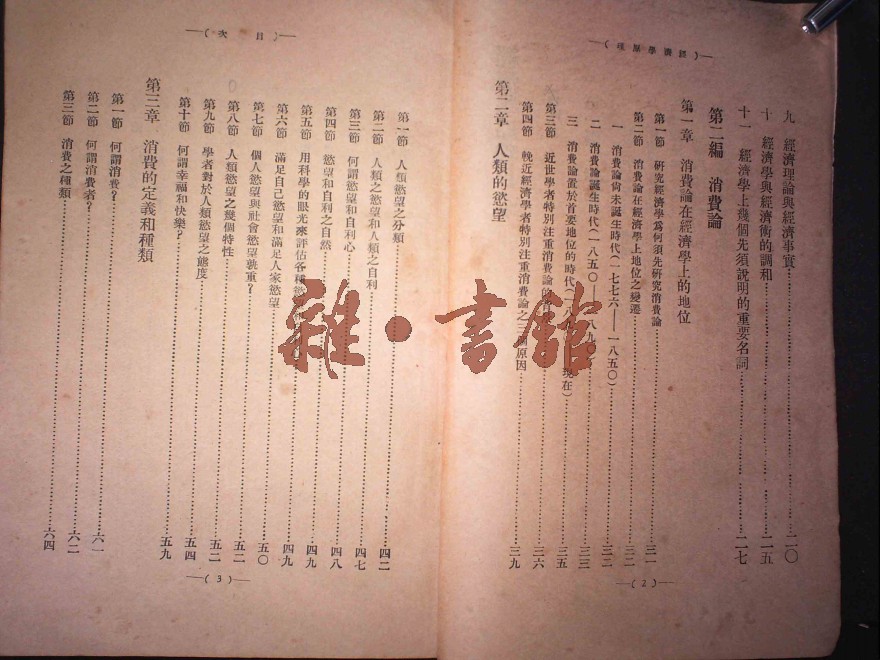 —（理原學濟經）—
九　經濟理論與經濟事實……二〇
十　經濟學與經濟術的調和……二五
十一　經濟學上幾個先須說明的重要名詞……二七
第二編　消費論
第一章　消費論在經濟學上的地位
第一節　研究經濟學爲何須先研究消費論……三一
第二節　消費論在經濟學上地位之變遷……三二
一　消費論尙未誕生時代(一七七六——一八五〇)……三二
二　消費論誕生時代(一八五〇——一八九〇)……三三
三　消費論置於首要地位的時代(一八九〇——現在)……三五
第三節　近世學者特別注重消費論……三六
第四節　輓近經濟學者特別注重消費論之三個原因……三九
第二章　人類的慾望
—(2)—
—（次　目）—
第一節　人類慾望之分類……四二
第二節　人類之慾望和人類之自利……四七
第三節　何謂慾望和自利心……四八
第四節　慾望和自利之自然……四九
第五節　用科學的眼光來評估各種慾……四九
第六節　滿足自己慾望和滿足人家慾望
第七節　個人慾望與社會慾望孰重？……五〇
第八節　人類慾望之幾個特性……五二
第九節　學者對於人類慾望之態度……五二
第十節　何謂幸福和快樂？……五四
五九
第三章　消費的定義和種類
第一節　何謂消費？……六一
第二節　何謂消費者？……六二
第三節　消費之種類……六四
—(3)—
雜·書館